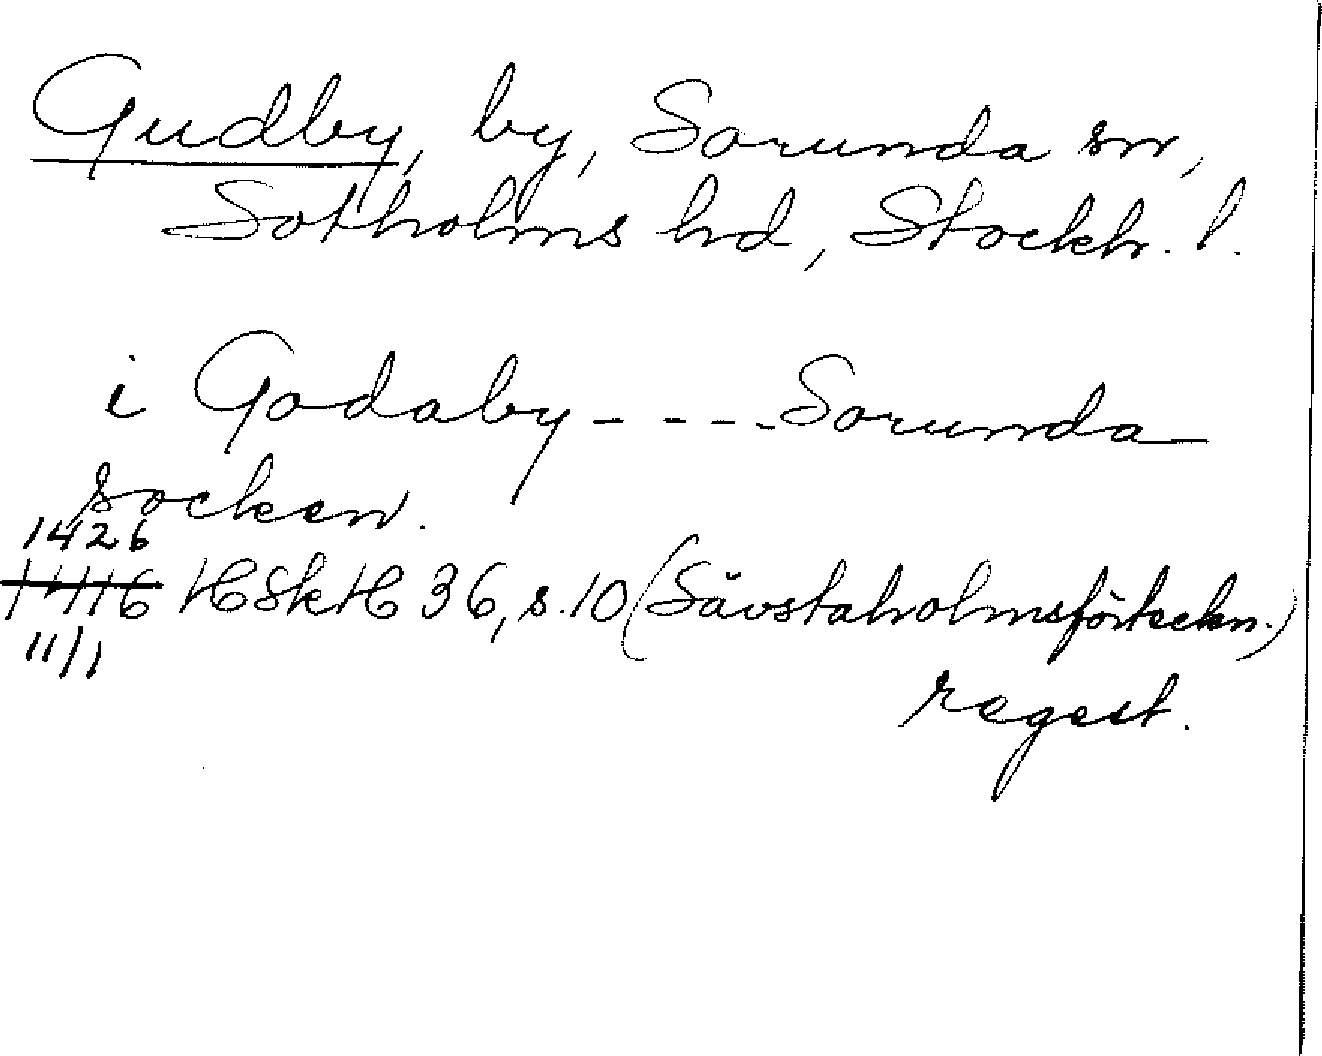 Gudby, by, Sorunda sn,
Sotholms hd, Stockh. l.
i Godaby - - - - Sorunda
socken.
1426
1416 HSkH 36, s. 10 (Sävstaholmsförteckn.)
11/1
regest.